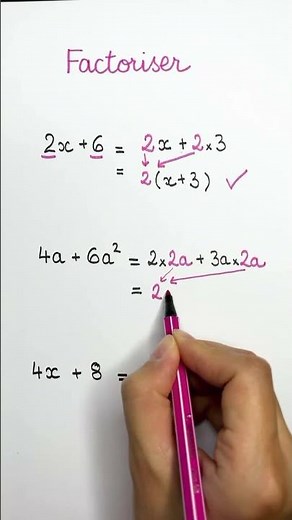 Factoriser
2x + 6 = 2x + 2 × 3
= 2(x + 3) ✓
4a + 6a² = 2 × 2a + 3a × 2a
= 2
4x + 8 =